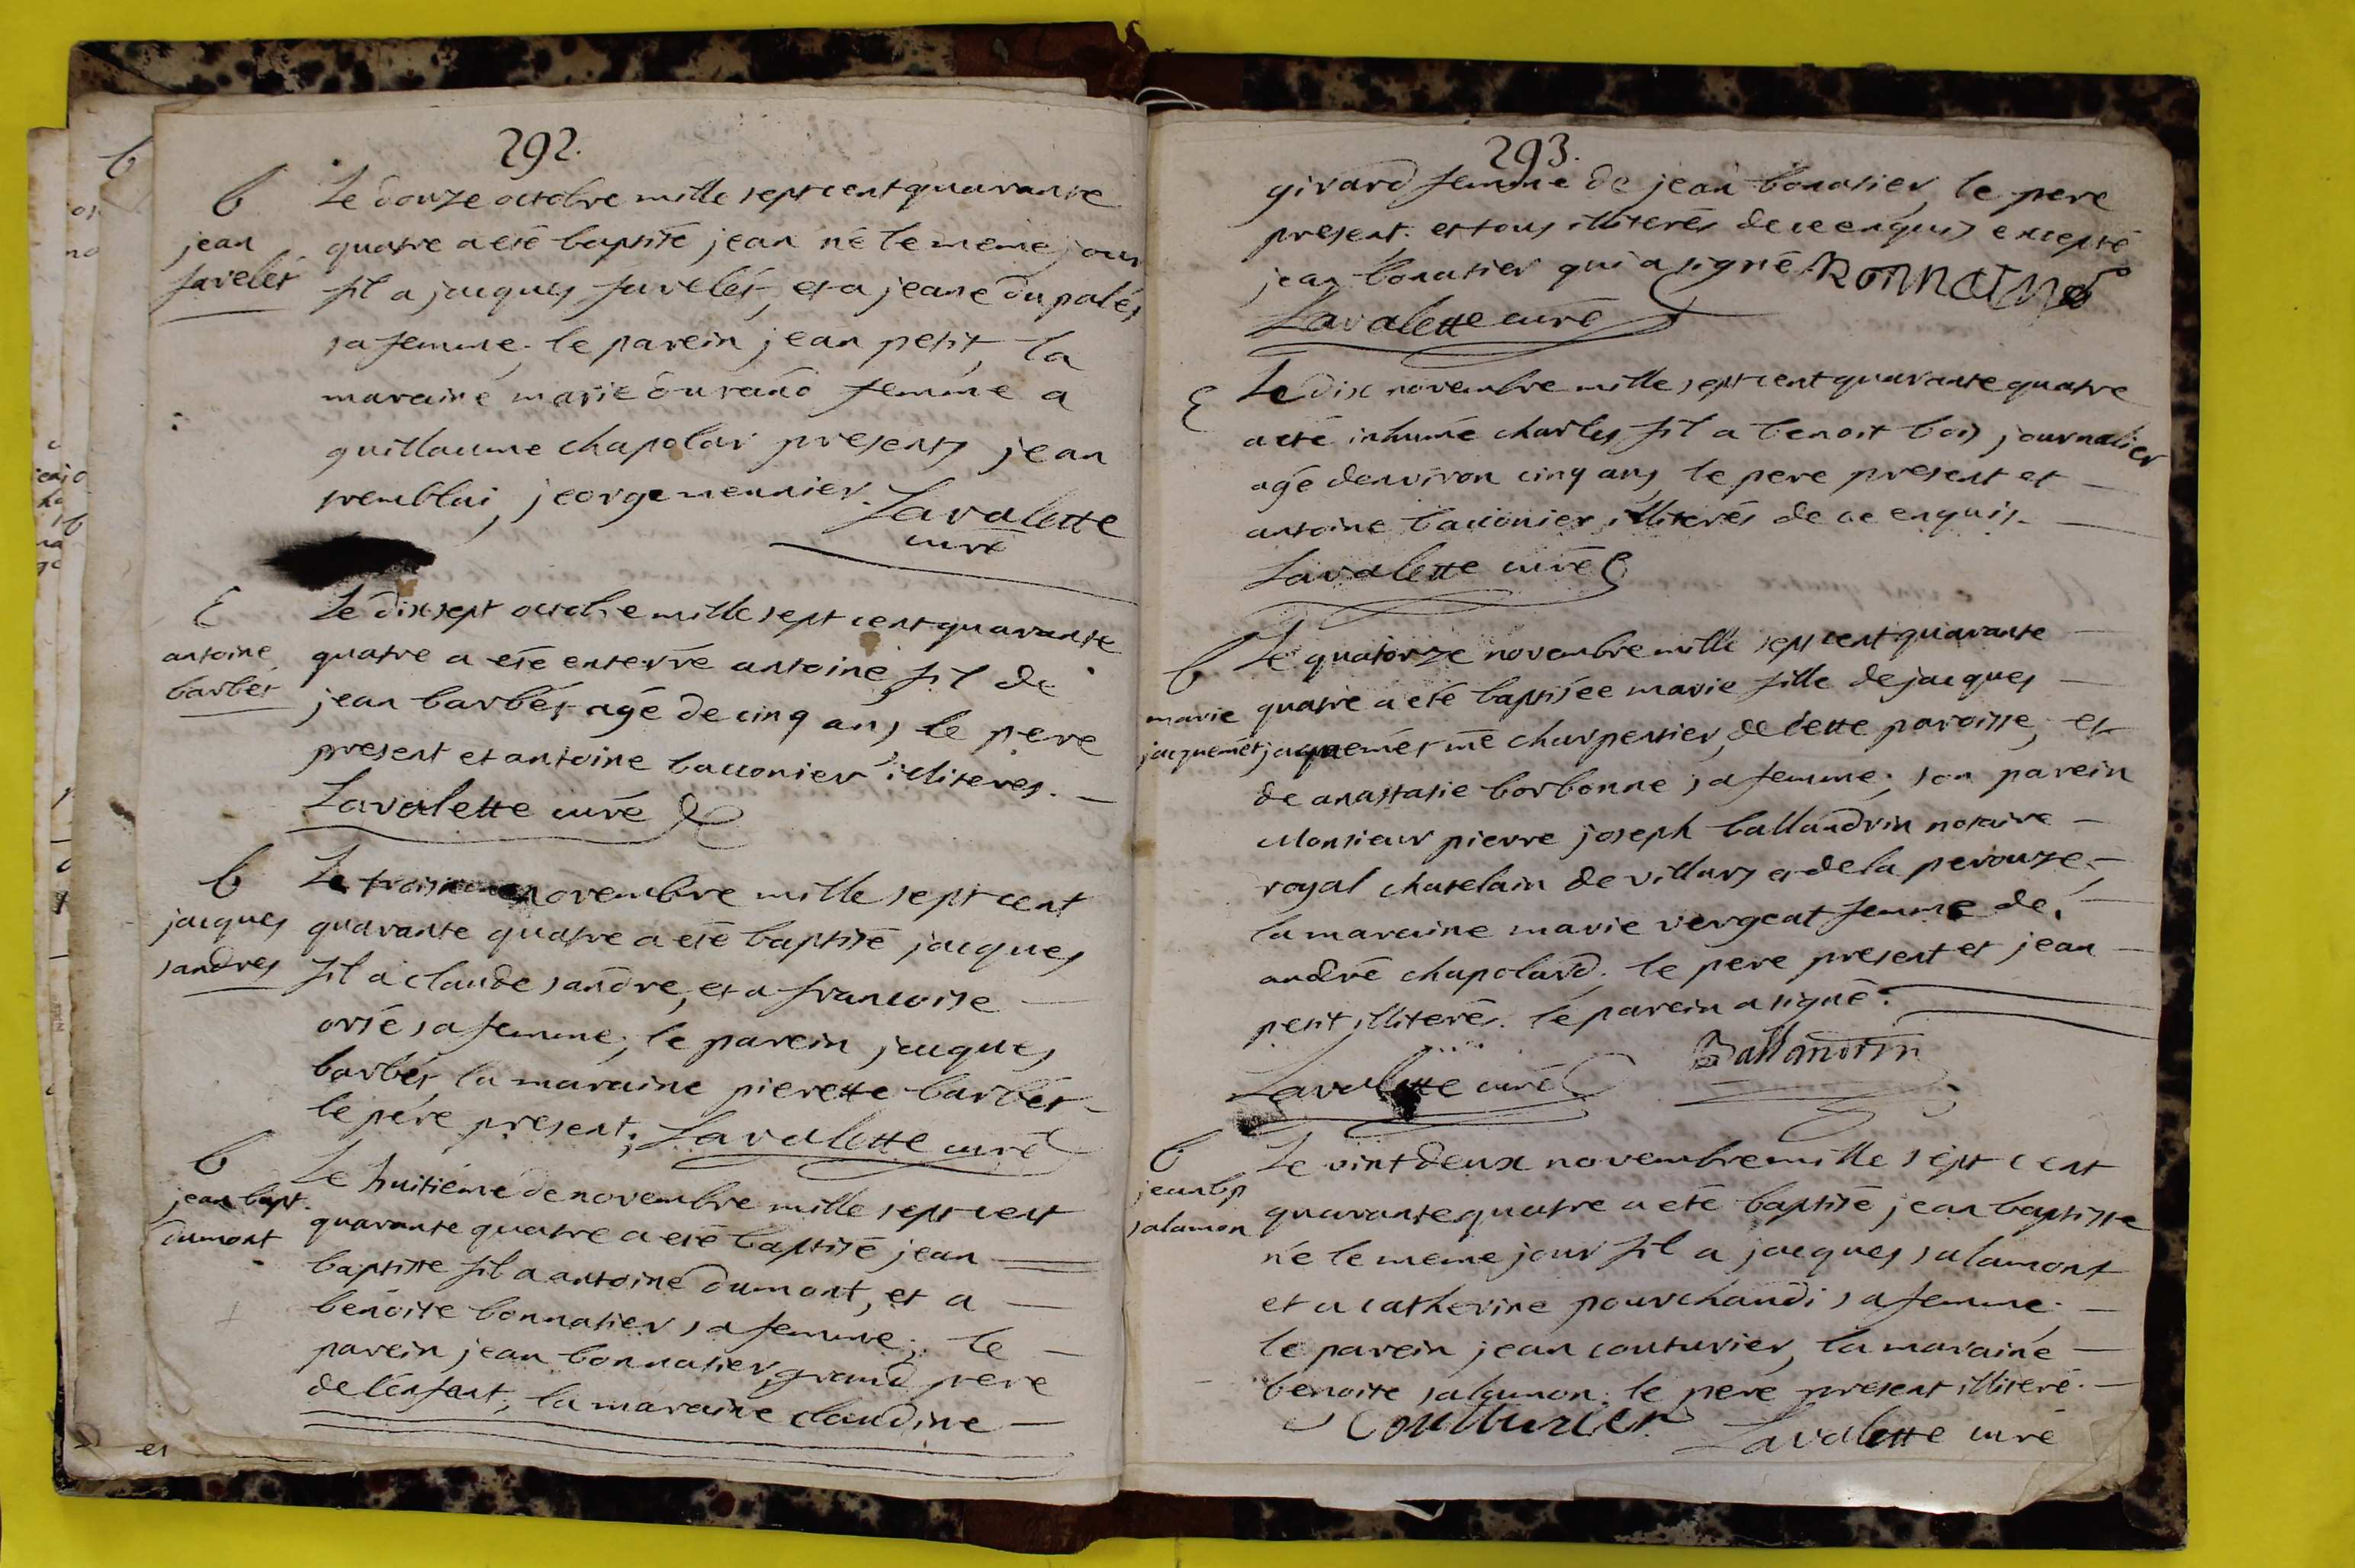 292.
b
jean
favelet
Le douze octobre mille sept cent quarante
quatre a eté baptisé jean né le meme jour
fil a jacques favelet, et a jeane dupalés
sa femme. le parein jean petit, la
maraine marie durand femme a
guillaume chapolar presents jean
tremblai, jeorge meunier. Lavalette
curé
E
antoine
barbet
Le dix sept octobre mille sept cent quarante
quatre a eté enterré antoine fil de
jean barbét agé de cinq ans, le pere
present et antoine bacconier illiteres.
Lavalette curé
b
jacques
sandres
Le novembre mille sept cent
quarante quatre a eté baptisé jacques
fil a claude sandre, et a francoise
orsé sa femme; le parein jacques
barbét, la maraine pierette barbét
le pére present; Lavalette curé
b
jean bapt.
dumont
Le huitiéme de novembre mille sept cent
quarante quatre a eté baptisé jean
baptiste fil a antoine dumont, et a
benoite bonnatier sa femme; le
parein jean bonnatier, grand pere
de l'enfant; la maraine claudine
293.
girard femme de jean bonatier, le pere
present. et tous illiterés de ce enquis excepté
jean bonatier qui a signé.
Lavalette curé
E
Le dix novembre mille sept cent quarante quatre
a eté inhumé charles fil a benoit bois journalier
agé denviron cinq ans, le pere present et
antoine bacconier, illiterés de ce enquis.
Lavalette curé
b
marie
jacquemét
Le quatorze novembre mille sept cent quarante
quatre a eté baptisée marie fille de jacques
jaquemét me charpentier, de cette paroisse, et
de anastasie borbonne sa femme; son parein
Monsieur pierre joseph ballandrin notaire
royal chatelain de villars et de la perouze,
la maraine marie vergeat femme de
andré chapolard. le pere present et jean
petit illiterés. le parein a signé.
Lavalette curé Ballandrin
b
jean bp
salamon
Le vint deux novembre mille sept cent
quarante quatre a eté baptisé jean baptiste
né le meme jour fil a jacques salamont
et a catherine pourchandi sa femme.
le parein jean couturier, la maraine
benoite salamon. le pere present illiteré.
Coutturier Lavalette curé